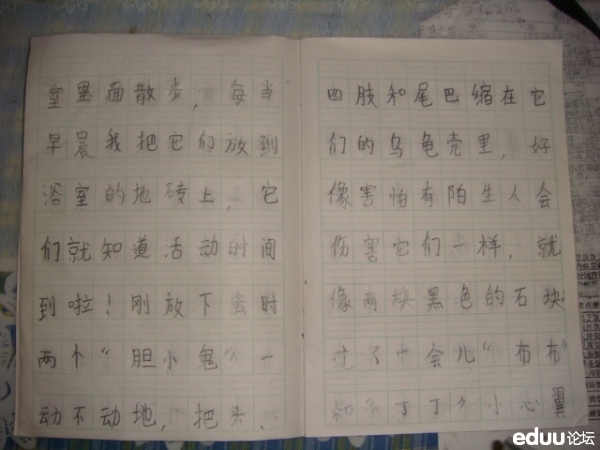 室里面散步，每当
早晨我把它们放到
浴室的地砖上，它
们就知道活动时间
到啦！刚放下去时
两个“胆小鬼”一
动不动地，把头、
四肢和尾巴缩在它
们的乌龟壳里，好
像害怕有陌生人会
伤害它们一样，就
像两块黑色的石块
过了一会儿“布布”
和“丁丁”小心翼
eduu论坛